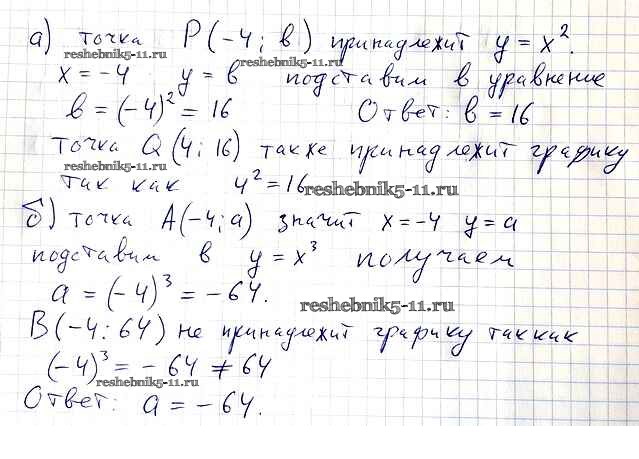 а) точка P(-4; b) принадлежит y = x².
reshebnik5-11.ru reshebnik5-11.ru
x = -4 y = b подставим в уравнение
b = (-4)² = 16 Ответ: b = 16
точка Q(4; 16) также принадлежит графику
reshebnik5-11.ru
так как 4² = 16 reshebnik5-11.ru
б) точка A(-4; a) значит x = -4 y = a
подставим в y = x³ получаем
a = (-4)³ = -64.
reshebnik5-11.ru
B(-4: 64) не принадлежит графику так как
(-4)³ = -64 ≠ 64
reshebnik5-11.ru
Ответ: a = -64.